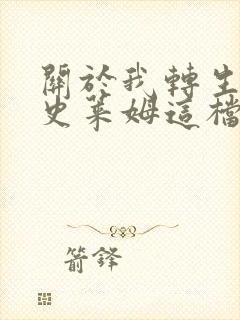 關於我轉生
史萊姆這檔
箭鋒